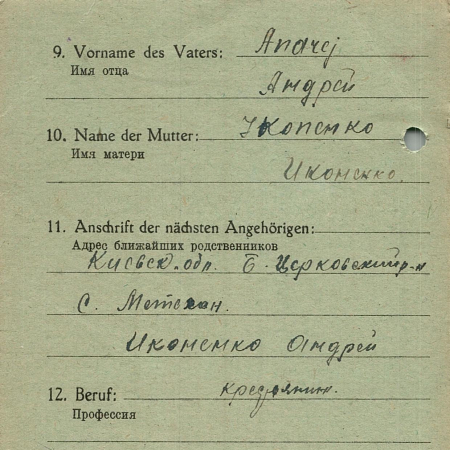 9. Vorname des Vaters: Andrej
Имя отца
Андрей
10. Name der Mutter: Ikonenko
Имя матери
Иконенко.
11. Anschrift der nächsten Angehörigen:
Адрес ближайших родственников
Киевск. обл. Б. Церковский р-н
с.
Иконенко Андрей
12. Beruf: крестьянин.
Профессия